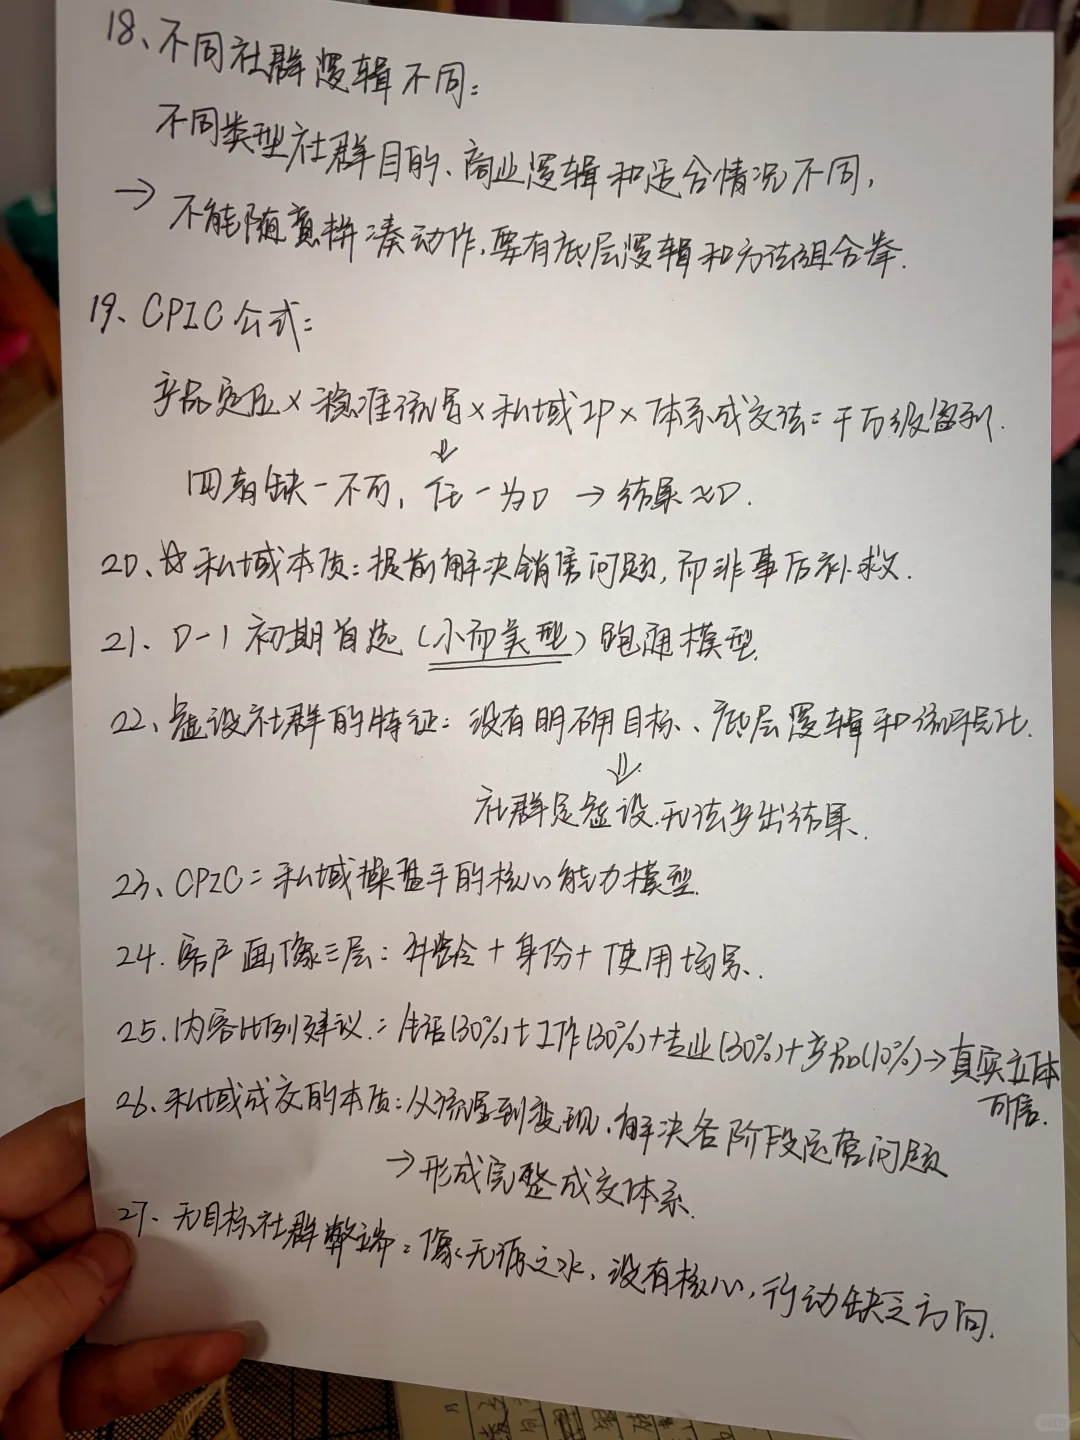 18、不同社群逻辑不同：
不同类型社群目的、商业逻辑和适合情况不同，
→ 不能随意拼凑动作，要有底层逻辑和方法组合拳.
19、CPIC公式：
产品定位×稳准流量×私域IP×体系成交法=千万级盈利.
⇓
四者缺一不可，任一为0 → 结果≈0.
20、☆私域本质：提前解决销售问题，而非事后补救.
21、0-1初期首选（小而美型）跑通模型.
22、虚设社群的特征：没有明确目标、底层逻辑和流程化.
⇓
社群是虚设.无法产出结果.
23、CPIC=私域操盘手的核心能力模型.
24.客户画像三层：年龄+身份+使用场景.
25.内容比例建议：生活(30%)+工作(30%)+专业(30%)+产品(10%)→真实立体
可信.
26、私域成交的本质：从流量到变现、解决各阶段运营问题
→形成完整成交体系.
27.无目标社群弊端：像无源之水，没有核心，行动缺乏方向.